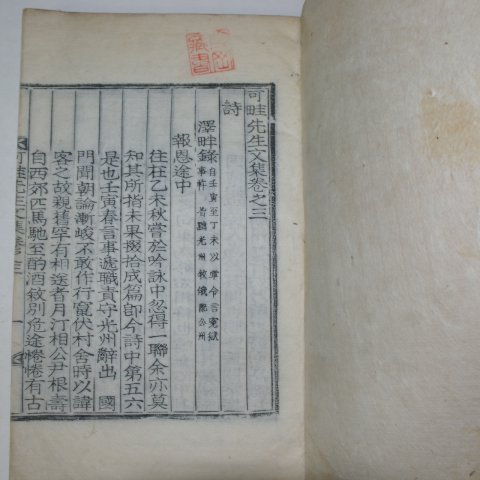 可畦先生文集卷之三
詩
澤畔錄自壬寅至丁未以章令言寃獄事作皆謫光州收議配公州
報恩途中
往在乙未秋嘗於吟詠中忽得一聯余亦莫
知其所指未果掇拾成篇即今詩中第五六
是也壬寅春言事遞職責守光州辭出 國
門聞朝論漸峻不敢作行竄伏村舍時以諱
客之故親舊罕有相送者月汀相公尹根壽
自西郊匹馬馳至酌酒敘別危途惓惓有古
可畦先生文集卷三
一
藏書